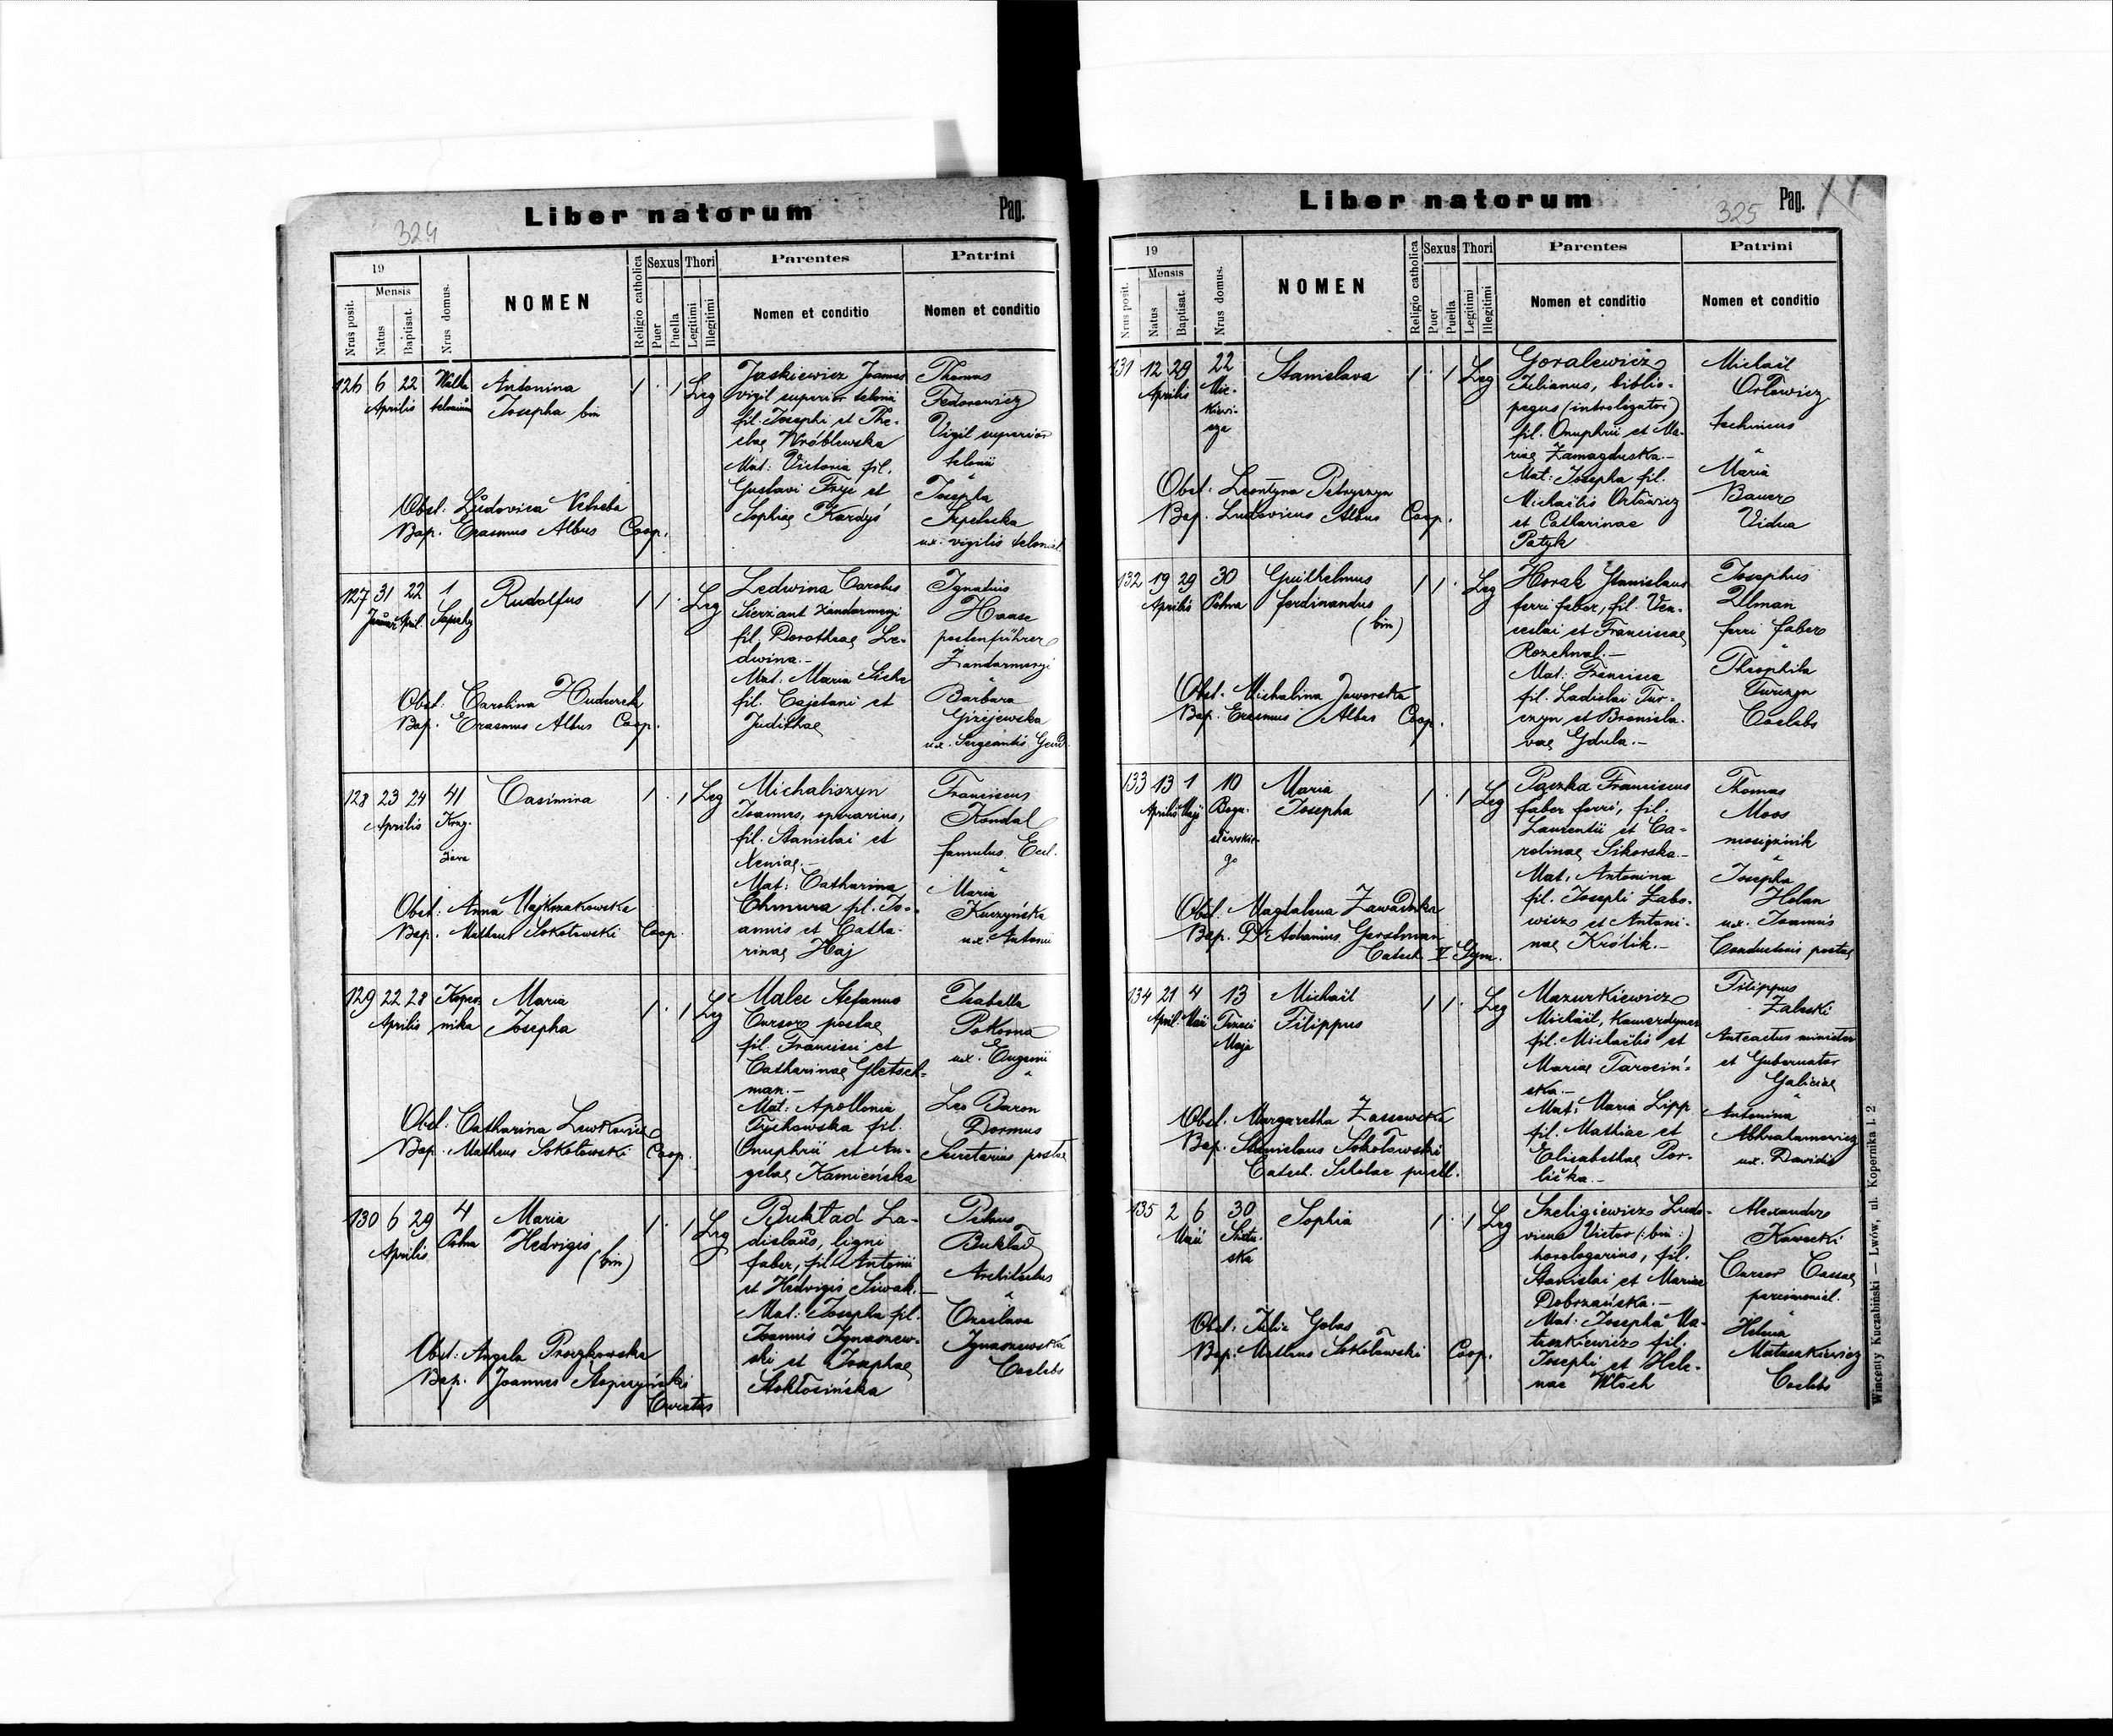 324
Liber natorum
Pag.
19
Mensis
Nrus posit.
Natus
Baptisat.
Nrus domus.
NOMEN
Religio catholica
Sexus
Puer
Puella
Thori
Legitimi
Illegitimi
Parentes
Nomen et conditio
Patrini
Nomen et conditio
126 6 22 Aprilis
Antonina
Josepha bin
1 1 Leg
Jaskiewicz Joannes
vigil superior telonii
fil. Josephi et The-
clae Wróblewska
Mat: Victoria fil.
Gustavi Fryc et
Sophiae Kardyś
Thomas
Fedorowicz
Vigil superior
telonii
Josepha
ux: vigilis telonial.
Obst: Ludovica
Bap. Erasmus Albus Coop.
127 31 22 1
Januar April. Sapiehy
Rudolfus
1 1 Leg
Ledwina Carolus
Sierżant żandarmeryi
fil. Dorotheae Le-
dwina.-
Mat. Maria
fil. Cajetani et
Judithae
Ignatius
Haase
postenführer
Żandarmeryi
Barbara
Giżejewska
ux. Sergeantis Gend.
Obst: Carolina Hudurek
Bap. Erasmus Albus Coop.
128 23 24 41
Aprilis
Casimira
1 1 Leg
Michaliszyn
Joannes, operarius,
fil. Stanislai et
Xeniae.-
Mat: Catharina
Chmura fil. Jo-
annis et Catha-
rinae Haj
Franciscus
Kondal
famulus Eccl.
Maria
Kuczyńska
ux. Antonii
Obst: Anna Majkrzakowska
Bap. Matheus Sokołowski Coop.
129 22 28 Koper-
Aprilis nika
Maria
Josepha
1 1 Leg
Malec Stefanus
Cursor postae
fil. Francisci et
Catharinae Gletsch-
man.-
Mat: Apollonia
Tychowska fil.
Onuphrii et An-
gelae Kamieńska
Isabella
Pokorna
ux. Eugenii
Leo Baron
Dormus
Secretarius postae
Obst. Catharina Lewkowicz
Bap. Matheus Sokołowski Coop.
130 6 29 4
Aprilis Pełna
Maria
Hedvigis
(bin)
1 1 Leg
Bukład La-
dislaus, ligni
faber, fil. Antonii
et Hedvigis Siwak.-
Mat: Josepha fil.
Joannis Ignaszew-
ski et Josephae
Stokłosińska
Petrus
Bukład
Architectus
Czeslava
Ignaszewska
Coelebs
Obst: Angela Proczkowska
Bap. Joannes
Curatus
325
Liber natorum
Pag.
19
Mensis
Nrus posit.
Natus
Baptisat.
Nrus domus.
NOMEN
Religio catholica
Sexus
Puer
Puella
Thori
Legitimi
Illegitimi
Parentes
Nomen et conditio
Patrini
Nomen et conditio
131 12 29 22
Aprilis Mic-
kiewi-
cza
Stanislava
1 1 Leg
Goralewicz
Julianus, biblio-
pegus (introligator)
fil. Onuphrii et Ma-
riae Zamagduska.-
Mat: Josepha fil.
Michaëlis Orłowicz
et Catharinae
Patyk
Michaël
Orłowicz
technicus
Maria
Bauer
Vidua
Obst. Leontyna Petryszyn
Bap. Ludovicus Albus Coop.
132 19 29 30
Aprilis Pełna
Guilhelmus
Ferdinandus
(bin)
1 1 Leg
Horak Stanislaus
ferri faber, fil. Ven-
ceslai et Franciscae
Rozehnal.-
Mat: Francisca
fil. Ladislai Tur-
czyn et Bronisla-
vae Gdula.-
Josephus
Ulman
ferri faber
Theophila
Turczyn
Coelebs
Obst. Michalina Jaworska
Bap. Erasmus Albus Coop.
133 13 1 10
Aprilis Maji Bogu-
sławskie-
go
Maria
Josepha
1 1 Leg
Paczka Franciscus
faber ferri, fil.
Laurentii et Ca-
rolinae Sikorska.-
Mat. Antonina
fil. Josephi Łabo-
wicz et Antoni-
nae Królik.-
Thomas
Moos
mosiężnik
Josepha
Holan
ux. Joannis
Conductoris postae
Obst. Magdalena Zawadzka
Bap. Dr Adamus Gerstman
Catech. V Gym.
134 21 4 13
April. Maii Trzeci
Maja
Michaël
Filippus
1 1 Leg
Mazurkiewicz
Michaël, Kamerdyner
fil. Michaëlis et
Mariae Tarociń-
ska.-
Mat: Maria Lipp
fil. Mathiae et
Elisabethae Por-
lička.-
Filippus
Zaleski
Anteactus minister
et Gubernator
Galiciae
Antonina
Abhrahamowicz
ux. Davidis
Obst. Margaretha Zassowska
Bap. Stanislaus Sokołowski
Catech. Scholae puell.
135 2 6 30
Maii
Sophia
1 1 Leg
Szeligiewicz Ludo-
vicus Victor (:bin:)
horologarius, fil.
Stanislai et Mariae
Dobrzańska.-
Mat: Josepha Ma-
tuszkiewicz fil.
Josephi et Hele-
nae Włoch
Alexander
Kawecki
Cursor Cassae
parcimonial.
Helena
Matuszkiewicz
Coelebs
Obst. Julia Gobas
Bap: Matheus Sokołowski Coop.
Wincenty Kuczabiński — Lwów, ul. Kopernika l. 2